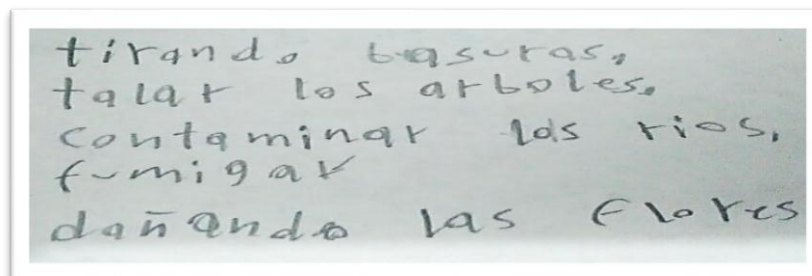 tirando basuras,
talar los arboles.
contaminar los rios,
fumigar
dañando las flores